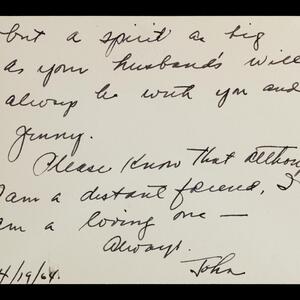 but a spirit as big
as your husband's will
always be with you and
Jenny.
Please know that althou
I am a distant friend, I
am a loving one —
Always.
John
4/19/64.